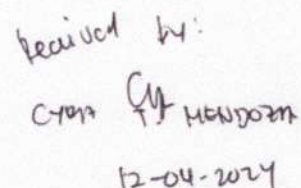 Received by:
CYRA T. MENDOZA
12-04-2024